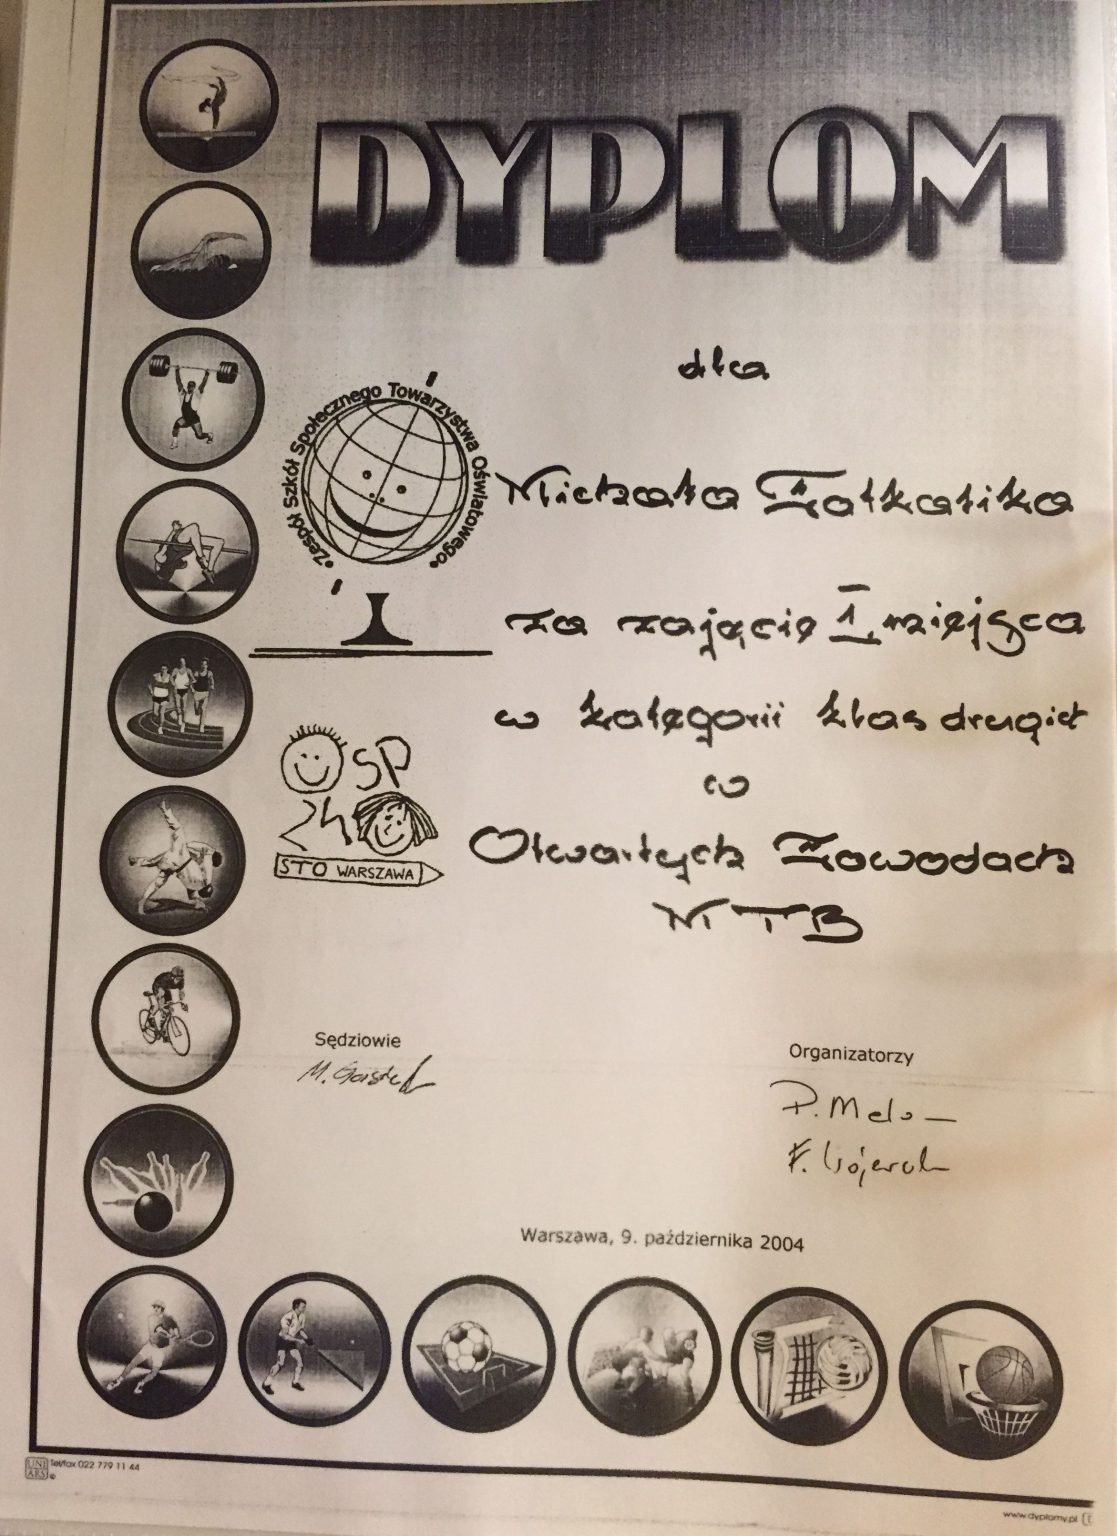 DYPLOM
dla
•Zespół Szkół Społecznego Towarzystwa Oświatowego•
Michała
za zajęcie I miejsca
w kategorii klas drugich
SP
24
STO WARSZAWA
w
Otwartych Zawodach
MTB
Sędziowie
Organizatorzy
M.
P.
F.
Warszawa, 9. października 2004
UNI ARS Tel/fax 022 779 11 44
www.dyplomy.pl